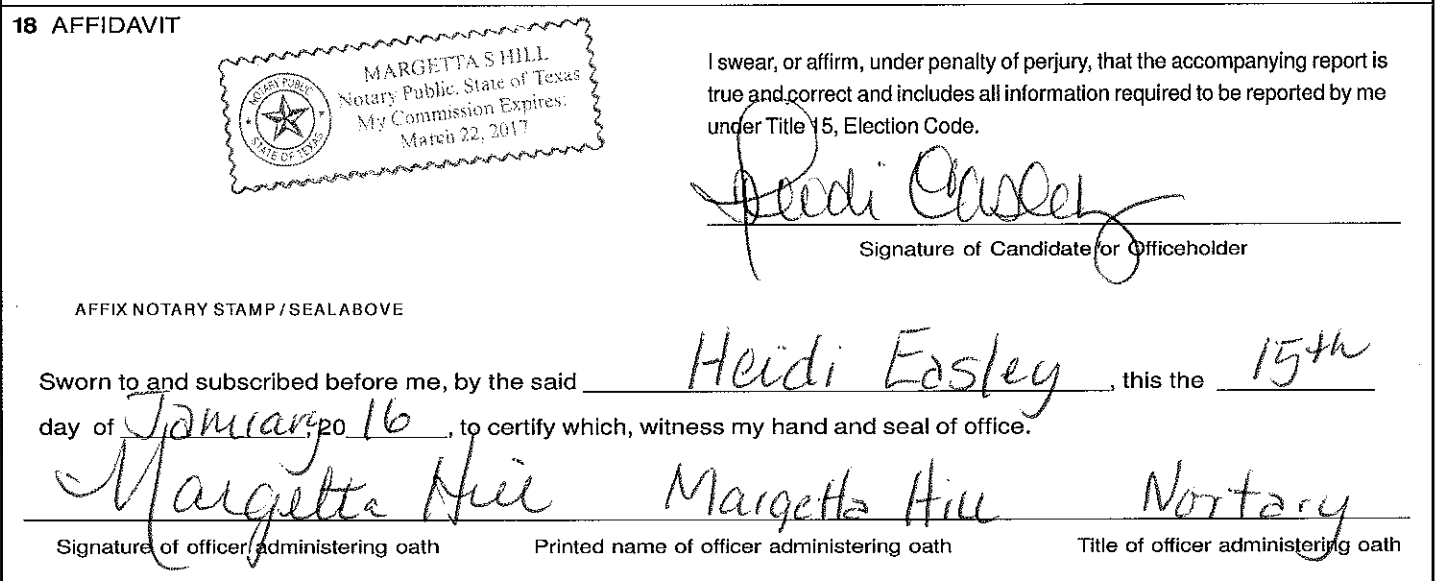 18 AFFIDAVIT
MARGETTA S HILL
Notary Public, State of Texas
My Commission Expires:
March 22, 2017
NOTARY PUBLIC
STATE OF TEXAS
I swear, or affirm, under penalty of perjury, that the accompanying report is
true and correct and includes all information required to be reported by me
under Title 15, Election Code.
Heidi Easley
Signature of Candidate or Officeholder
AFFIX NOTARY STAMP / SEAL ABOVE
Sworn to and subscribed before me, by the said Heidi Easley, this the 15th
day of January, 20 16, to certify which, witness my hand and seal of office.
Margetta Hill Margetta Hill Nortary
Signature of officer administering oath Printed name of officer administering oath Title of officer administering oath